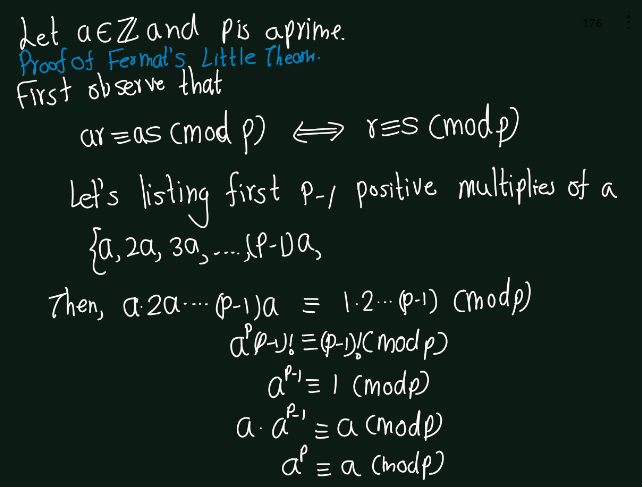 176
Let a∈ℤ and p is a prime.
Proof of Fermat's Little Theorm.
First observe that
ar ≡ as (mod p) ⟺ r≡s (mod p)
Let's listing first p-1 positive multiplies of a
{a, 2a, 3a, ....,(p-1)a,
Then, a·2a····(p-1)a ≡ 1·2···(p-1) (mod p)
aᵖ(p-1)! ≡ (p-1)! (mod p)
aᵖ⁻¹ ≡ 1 (mod p)
a·aᵖ⁻¹ ≡ a (mod p)
aᵖ ≡ a (mod p)